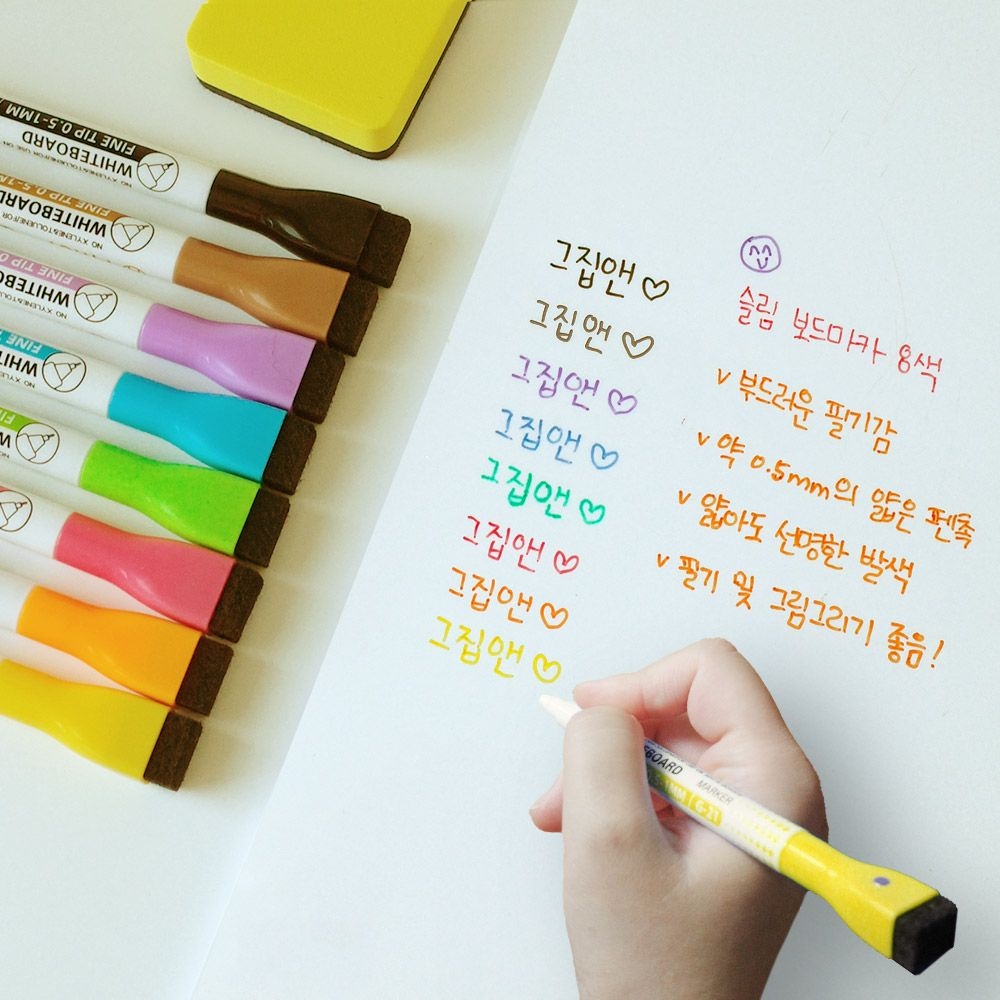 그집앤♡
그집앤♡
그집앤♡
그집앤♡
그집앤♡
그집앤♡
그집앤♡
그집앤♡
슬림 보드마카 8색
v 부드러운 필기감
v 약 0.5mm의 얇은 펜촉
v 얇아도 선명한 발색
v 필기 및 그림그리기 좋음!
FINE TIP 0.5-1MM
WHITEBOARD
NO XYLENE&TOLUENE/FOR USE ON
FINE TIP 0.5-1MM
WHITEBOARD
NO XYLENE&TOLUENE/FOR
FINE TIP
WHITEBOA
NO XYLENE&TOLUE
FINE TIP
WHITE
NO XYL
MARKER
G-21